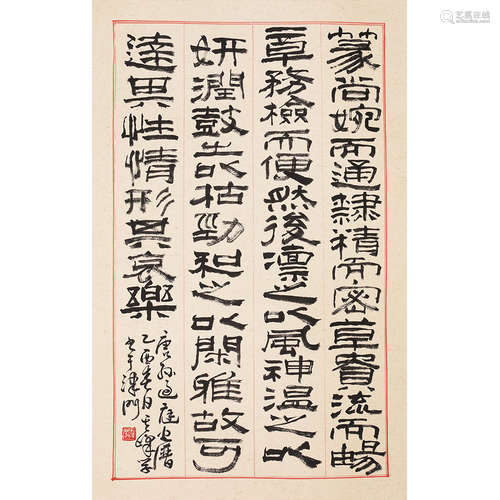 篆尚婉而通隸精而密草貴流而暢
章務檢而便然後凛之以風神温之以
妍潤鼓之以枯勁和之以閑雅故可
達其性情形其哀樂
唐孫過庭書譜
乙酉春日其峰
書于津門